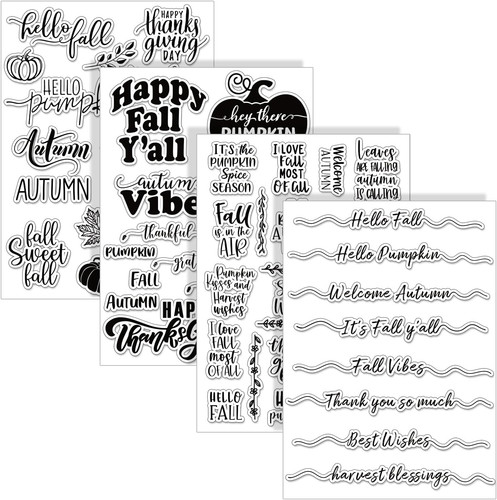 hello fall
HAPPY
thanks
giving
DAY
HELLO
Autumn
AUTUMN
fall
Sweet
fall
Happy
Fall
Y'all
hey there
PUMPKIN
autumn
Vibe
thankful
PUMPKIN
FALL
AUTUMN
IT'S THE
PUMPKIN
Spice
SEASON
I LOVE
Fall
MOST
OF all
Welcome
AUTUMN
Leaves
ARE FALLING
autumn
IS CALLING
Fall
IS IN THE
AIR
Pumpkin
Kisses and
Harvest
wishes
I love
FALL
most
OF ALL
HELLO
FALL
Hello Fall
Hello Pumpkin
Welcome Autumn
It's Fall y'all
Fall Vibes
Thank you so much
Best Wishes
harvest blessings